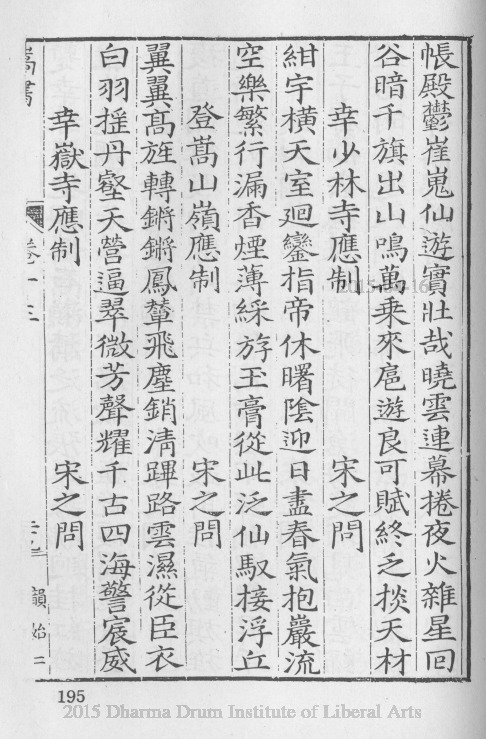 帳殿鬱崔嵬仙遊實壯哉曉雲連幕捲夜火雜星回
谷暗千旗出山鳴萬乘來扈遊良可賦終乏掞天材
幸少林寺應制 宋之問
紺宇橫天室迴鑾指帝休曙陰迎日盡春氣抱巖流
空樂繁行漏香煙薄綵斿玉膏從此泛仙馭接浮丘
登嵩山嶺應制 宋之問
翼翼高旌轉鏘鏘鳳輦飛塵銷淸蹕路雲濕從臣衣
白羽搖丹壑天營逼翠微芳聲耀千古四海警宸威
幸嶽寺應制 宋之問
嵩書 卷十三 韻始二
195
2015 Dharma Drum Institute of Liberal Arts